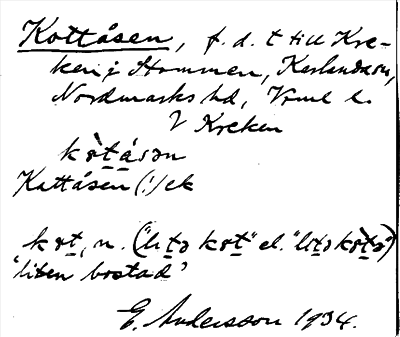 Kottåsen, f. d. t till Kre-
ken i Hommen, Karlanda sn,
Nordmarks hd, Vrml l.
V Kreken
kòtåsən
Kattåsen (!) ek
kot, n. ("litə kot" el. "litə kòtə")
'liten bostad'
E. Andersson 1934.